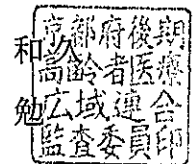 和久
勉
京都府後期
高齢者医療
広域連合
監査委員印